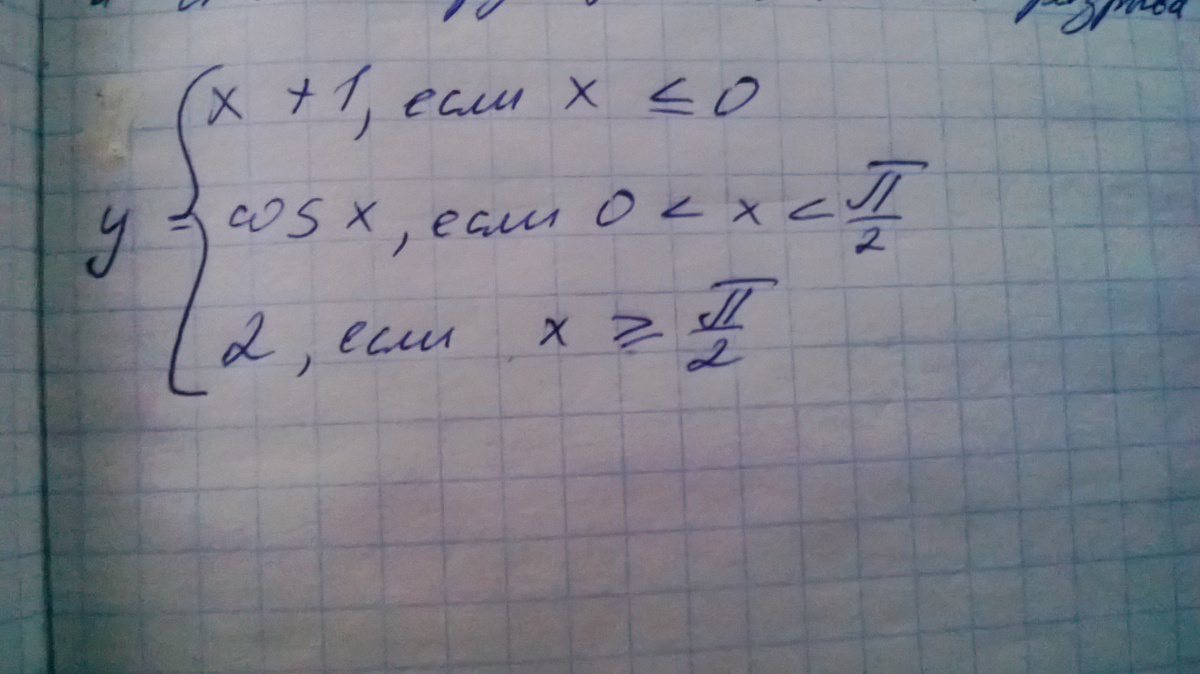 y = { x + 1, если x ≤ 0
cos x, если 0 < x < π/2
2, если x ≥ π/2